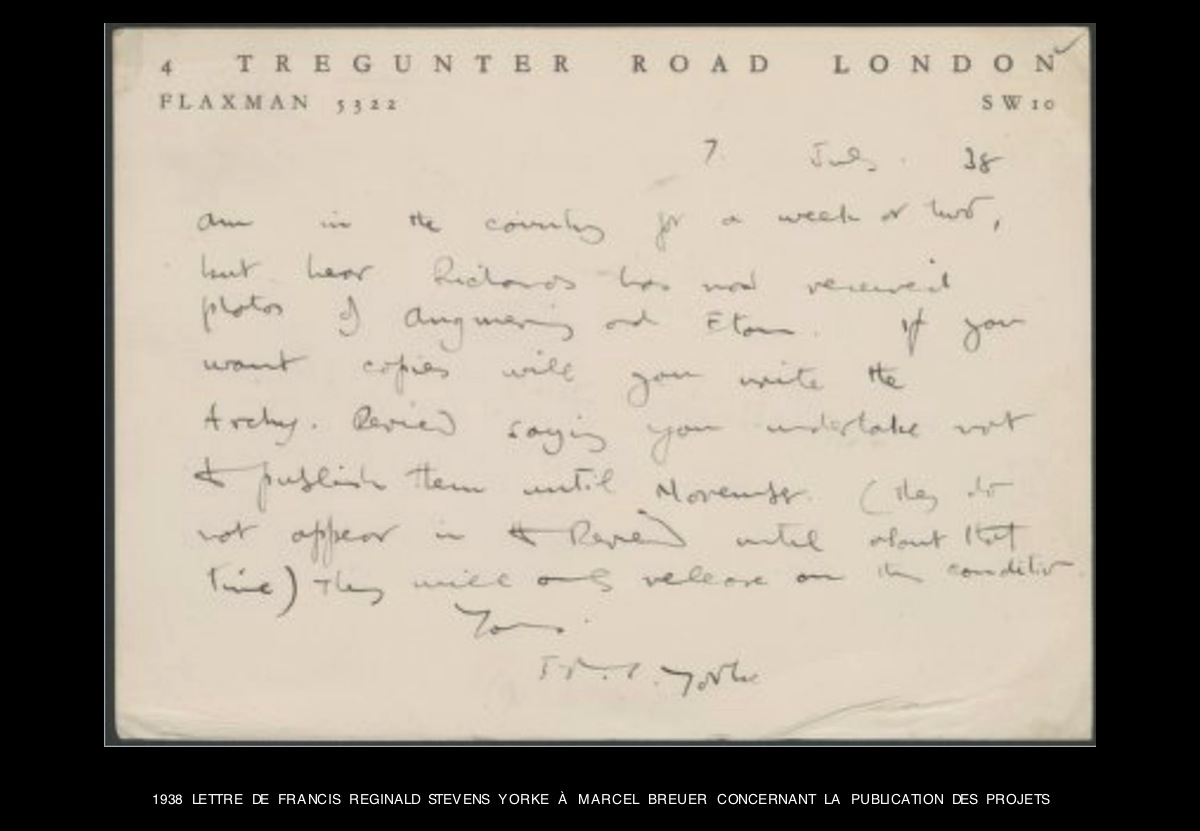 4 TREGUNTER ROAD LONDON
FLAXMAN 5322 SW10
7. July. 38
am in the country for a week or two,
but hear Richards has now received
photos of Angmering and Eton. If you
want copies will you write the
Archs. Review saying you undertake not
to publish them until November. (they do
not appear in the Review until about that
time) They will only release on this condition
Yours.
Yorke
1938 LETTRE DE FRANCIS REGINALD STEVENS YORKE À MARCEL BREUER CONCERNANT LA PUBLICATION DES PROJETS